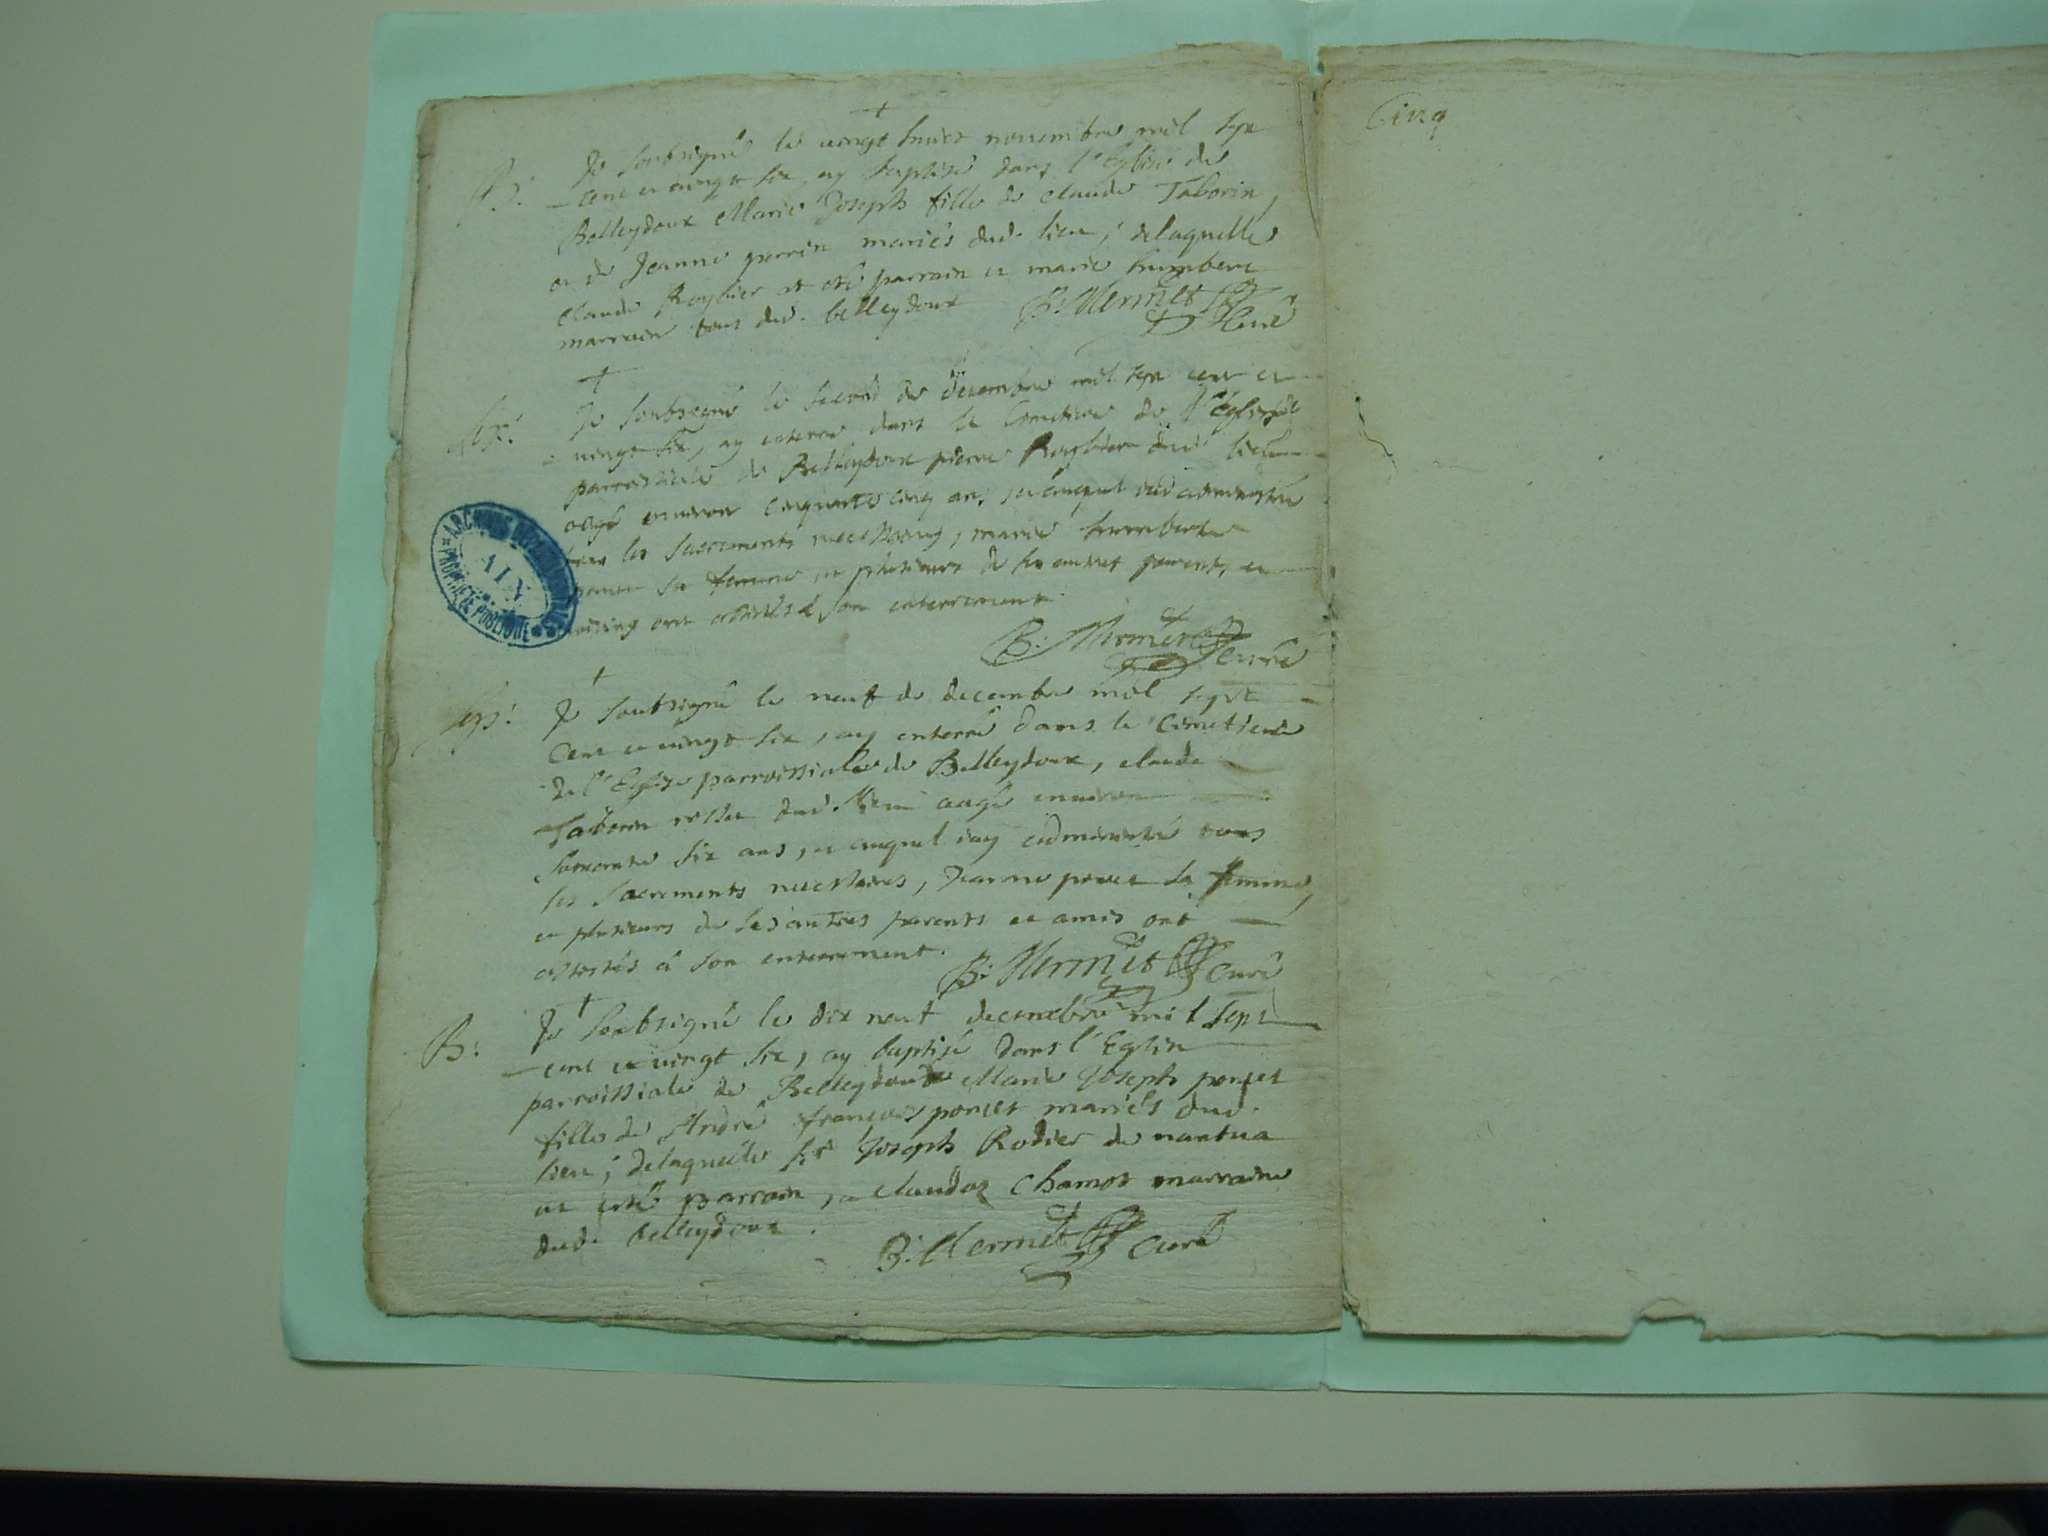 +
B: Je soubsigné le vingt huict novembre mil sept
cent et vingt six, ay baptisé dans l'Eglise de
Belleydoux Marie Joseph fille de Claude Taborin,
et de Jeanne perrin mariés dud. lieu; delaquelle
claude Roybier at eté parrain et marie humbert
marraine tous dud. belleydoux B: Mermet Curé
+
Je soubsigné le second de decembre mil sept cent et
vingt six, ay enterré dans le Cimetiere de l'Eglise
parroissiale de Belleydoux pierre Roybier dud. lieu
aagé environ cinquante cinq ans, auquel iay administré
tous les sacrements necessaires, marie humbert
sa femme, et plusieurs de ses autres parents, et
voisins ont assistés à son enterrement.
B: Mermet curé
+
Sep: Je soubsigné le neuf de decembre mil sept
Cent et vingt six, ay enterré dans le Cimetiere
de l'Eglise parroissiale de Belleydoux, claude
Taborin dud. lieu aagé environ
soixante six ans, et auquel iay administré tous
les sacrements necessaires, Jeanne sa femme,
et plusieurs de ses autres parents et amis ont
assistés à son enterrement. B: Mermet Curé
+
B: Je soubsigné le dix neuf decembre mil sept
cent et vingt six, ay baptisé dans l'Eglise
parroissiale de Belleydoux Marie Joseph poncet
fille de André françois poncet mariés dud.
lieu; delaquelle sr Joseph Rodier de nantua
at esté parrain, et claudaz Chamot marraine
dud. belleydoux.
B: Mermet Curé
Cinq
ARCHIVES DEPARTEMENTALES
AIN
PROPRIETE PUBLIQUE